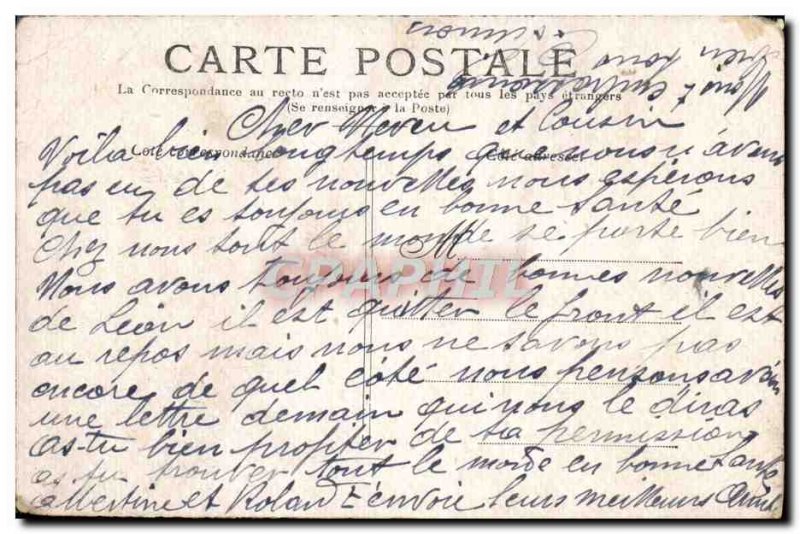 CARTE POSTALE
La Correspondance au recto n'est pas acceptée par tous les pays étrangers
(Se renseigner à la Poste)
Côté correspondance
Côté adresse
M
CPAPHIL
Cher Neveu et Cousin
Voila bien longtemps que nous n'avons
pas eu de tes nouvelles nous espérons
que tu es toujours en bonne santé
Chez nous tout le monde se porte bien
Nous avons toujours de bonnes nouvelles
de Léon il est quitter le front il est
au repos mais nous ne savons pas
encore de quel côté nous penzons avoir
une lettre demain qui nous le diras
as-tu bien profiter de ta permission
as tu trouver tout le monde en bonne Santé
Albertine et Roland t'envoie leurs meilleurs